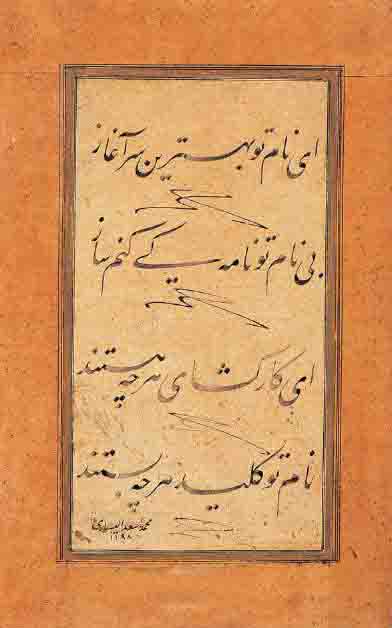 ای نام تو بهترین سرآغاز
بی نام تو نامه کی کنم باز
ای کارگشای هر چه هستند
نام تو کلید هر چه بستند
محمد اسعد الیساری
۱۱۹۸